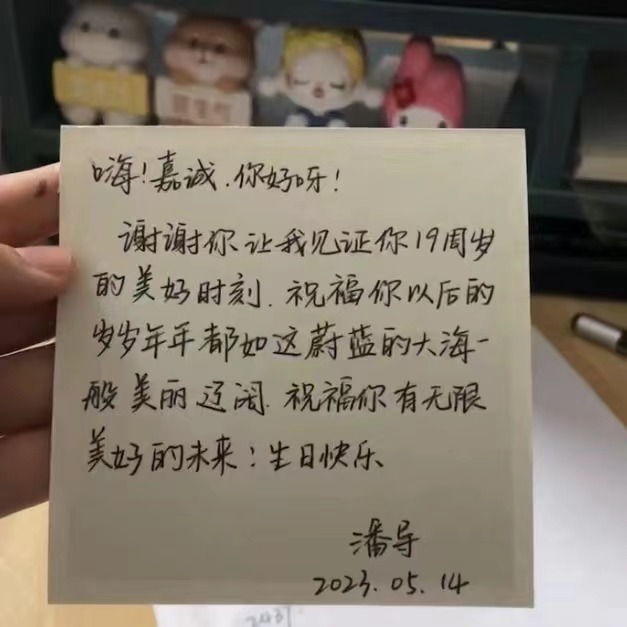 嗨！嘉诚.你好呀！
谢谢你让我见证你19周岁
的美好时刻.祝福你以后的
岁岁年年都如这蔚蓝的大海一
般美丽辽阔.祝福你有无限
美好的未来！生日快乐
潘导
2023.05.14